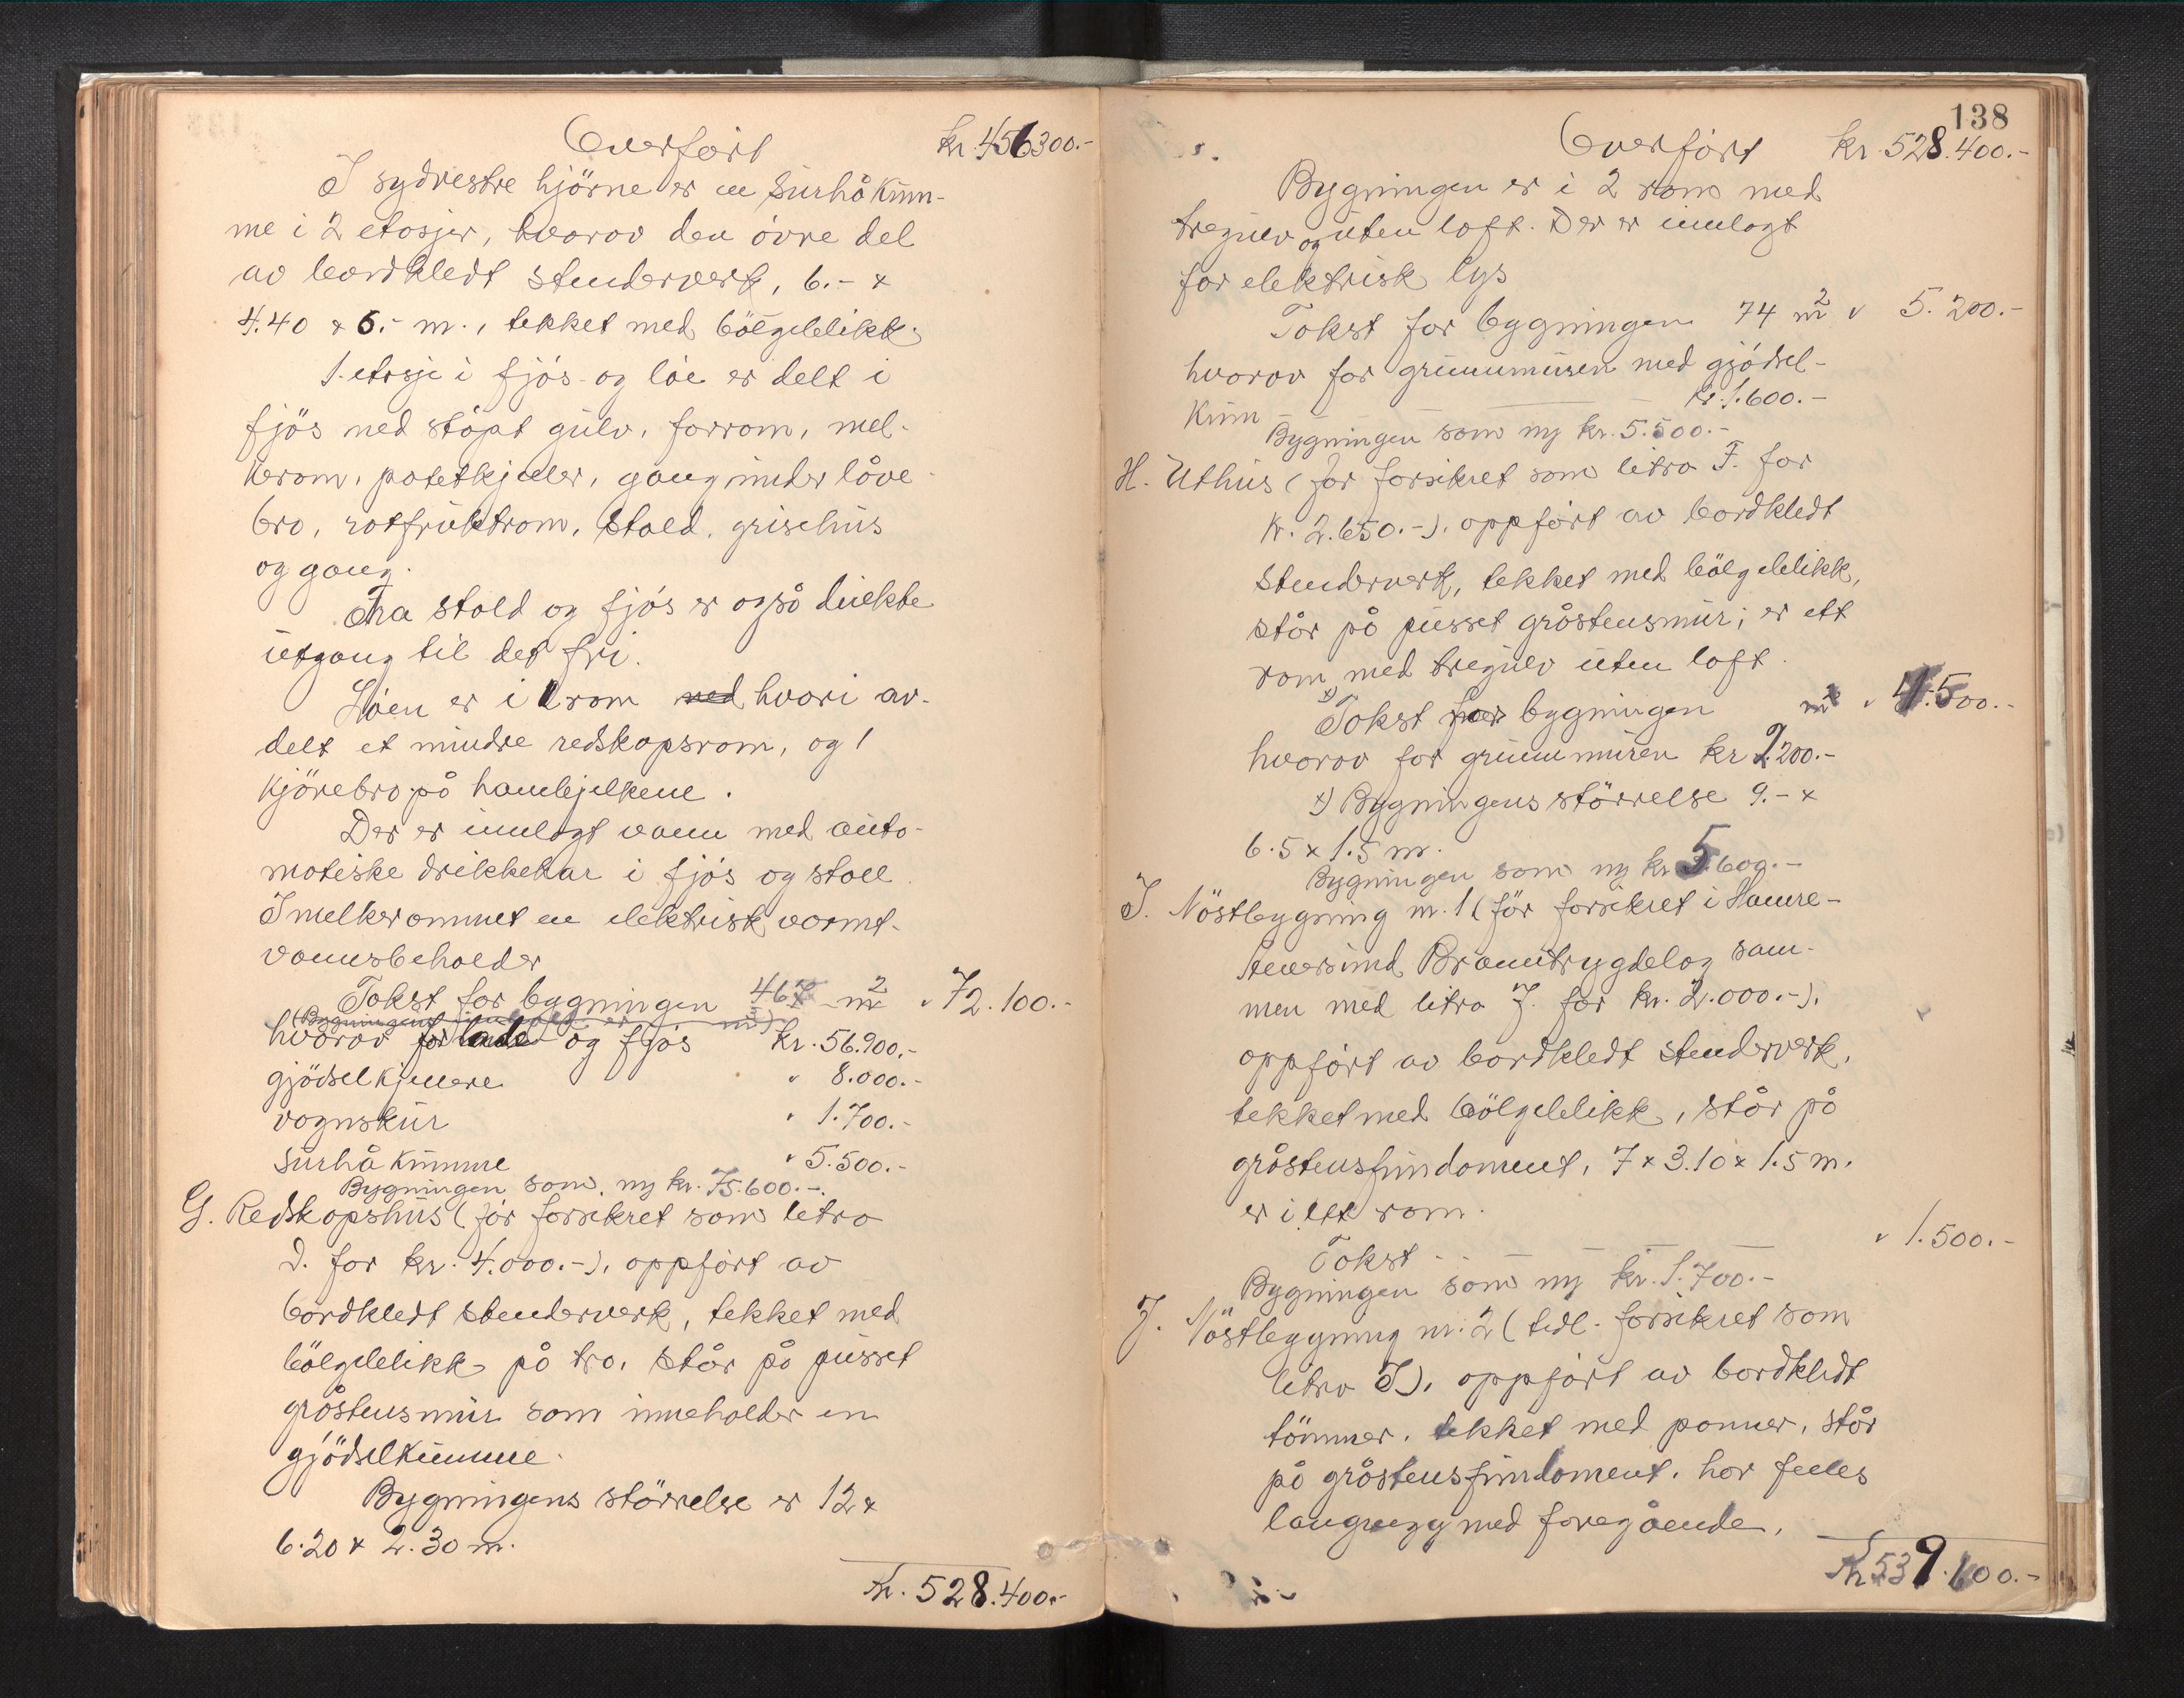 Overført kr. 456300.-
I sydvestre hjörne er en surhåkum-
me i 2 etasjer, hvorav den övre del
av bordkledt stenderverk, 6.- x
4.40 x 6.- m., tekket med bölgeblikk.
1. etasje i fjös og löe er delt i
fjös med stöpt gulv, forrom, mel-
kerom, potetkjeler, gang under låve-
bro, rotfruktrom, stald, grisehus
og gang.
Fra stald og fjös er også direkte
utgang til det fri.
Löen er i 1 rom med hvori av-
delt et mindre redskapsrom, og 1
kjörebro på hambjelkene.
Der er innlagt vann med auto-
matiske drikkekar i fjös og stall
I melkerommet en elektrisk varmt-
vannsbeholder
Takst for bygningen 467 m2 " 72.100.-
(Bygningens innhold er m3)
hvorav for lade og fjös kr. 56.900.-
gjödselkjellere " 8.000.-
vognskur " 1.700.-
surhåkumme " 5.500.-
Bygningen som ny kr. 75.600.-.
G. Redskapshus (för forsikret som litra
D. for kr. 4.000.-), oppfört av
bordkledt stenderverk, tekket med
bölgeblikk på tro, står på pusset
gråstensmur som inneholder en
gjödselkumme.
Bygningens störrelse er 12 x
6.20 x 2.30 m.
Kr. 528.400.-
138
Overfört kr. 528.400.-
Bygningen er i 2 rom med
tregulv og uten loft. Der er innlagt
for elektrisk lys
Takst for bygningen 74 m2 " 5.200.-
hvorav for grunnmuren med gjödsel-
kum kr. 1.600.-
Bygningen som ny kr. 5.500.-
H. Uthus (för forsikret som litra F. for
kr. 2.650.-), oppfört av bordkledt
stenderverk, tekket med bölgeblikk,
står på pusset gråstensmur; er ett
rom med tregulv uten loft.
x) Takst for bygningen m2 " 4.500.-
hvorav for grunnmuren kr 2.200.-
x) Bygningens störrelse 9.- x
6.5 x 1.5 m.
Bygningen som ny kr 5.600.-
I. Nöstbygning nr. 1 (för forsikret i Hamre-
Branntrygdelag sam-
men med litra J. for kr. 2.000.-),
oppfört av bordkledt stenderverk,
tekket med bölgeblikk, står på
gråstensfundament, 7 x 3.10 x 1.5 m.
er i ett rom.
Takst " 1.500.-
Bygningen som ny kr. 1.700.-
J. Nöstbygning nr. 2 (tidl. forsikret som
litra I), oppfört av bordkledt
tömmer, tekket med panner, står
på gråstensfundament, har felles
langvegg med foregående.
Kr. 539.600.-